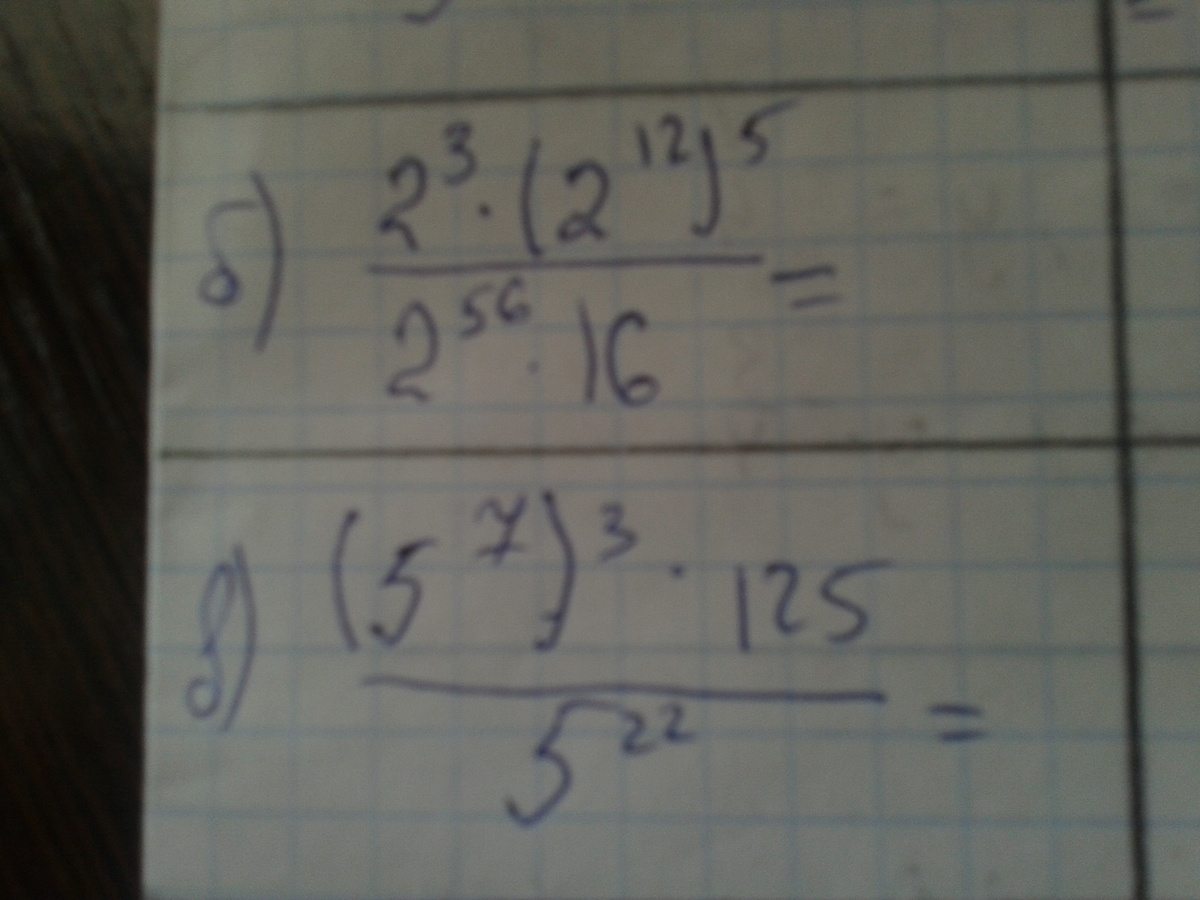 б) (2³ · (2¹²)⁵) / (2⁵⁶ · 16) =
в) ((5⁷)³ · 125) / 5²² =